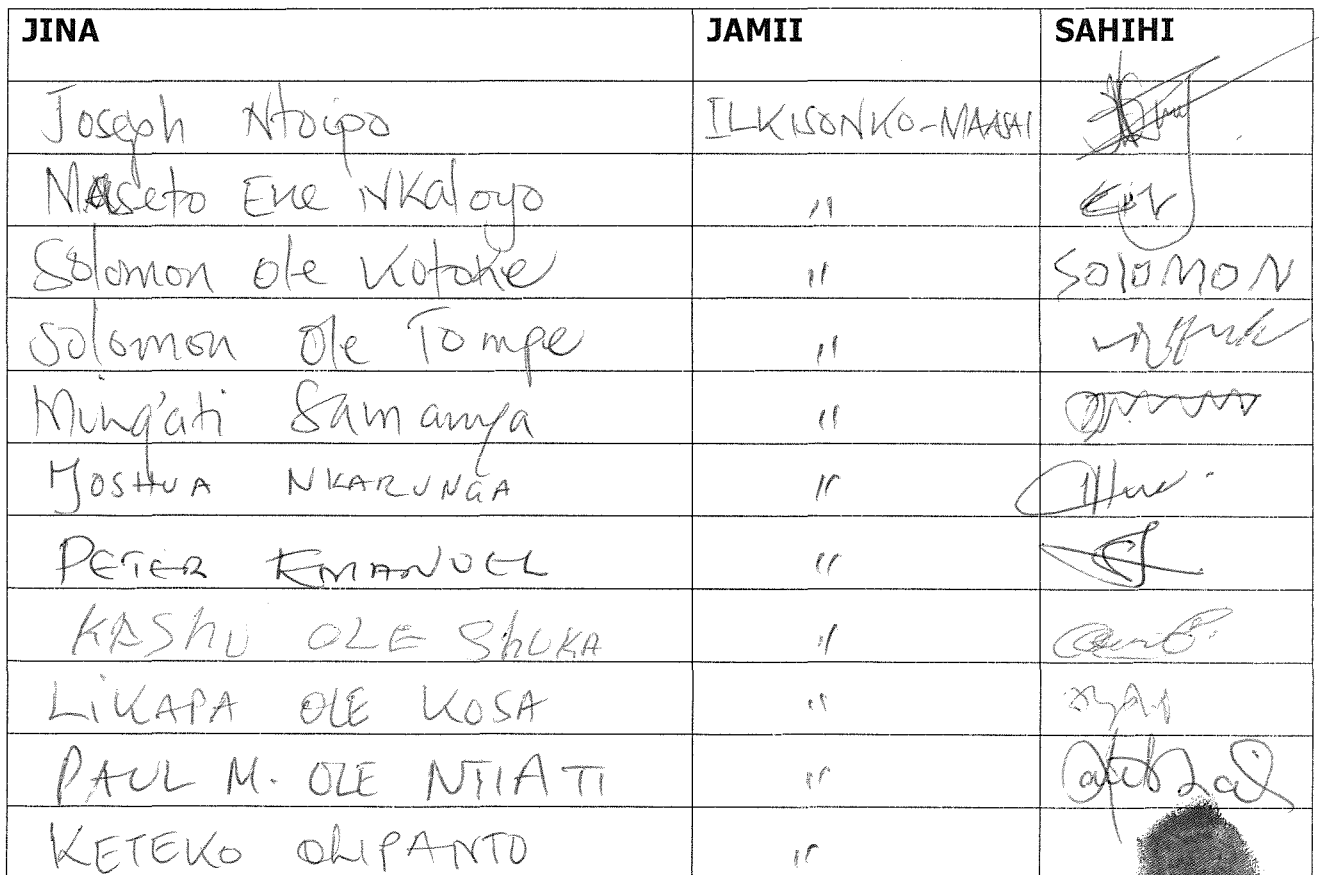 JINA JAMII SAHIHI
Joseph Ntoipo ILKISONKO-MAASAI
Maseto Ene Nkaloyo "
Solomon Ole Kotoke " SOLOMON
Solomon Ole Tompe "
Ming'ati Samanya "
JOSHUA NKARUNGA "
PETER EMANUEL "
KASHU OLE ShUKA "
LiKAPA OLE KOSA "
PAUL M. OLE NTIATI "
KETEKO "